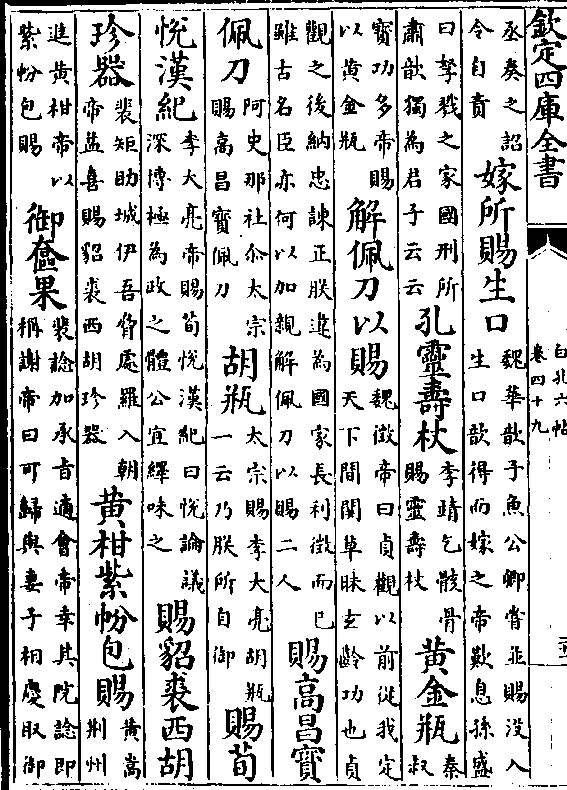 欽定四庫全書
白孔六帖
卷四十九
丞奏之詔
令自責
嫁所賜生口
魏華歆子魚公卿嘗並賜沒入
生口歆得而嫁之帝歎息孫盛
曰孥戮之家國刑所
肅歆獨為君子云云
孔靈壽杖
李靖乞骸骨
賜靈壽杖
黃金瓶
秦
叔
寳功多帝賜
以黃金瓶
解佩刀以賜
魏徵帝曰貞觀以前從我定
天下間關草昧玄齡功也貞
觀之後納忠諫正朕違為國家長利徵而已
雖古名臣亦何以加親解佩刀以賜二人
賜高昌寳
佩刀
阿史那社尒太宗
賜高昌寳佩刀
胡瓶
太宗賜李大亮胡瓶
一云乃朕所自御
賜荀
悅漢紀
李大亮帝賜荀悅漢紀曰悅論議
深博極為政之體公宜繹味之
賜貂裘西胡
珍器
裴矩助城伊吾脅處羅入朝
帝益喜賜貂裘西胡珍器
黃柑紫帉包賜
黃嵩
荆州
進黃柑帝以
紫帉包賜
御奩果
裴諗加承旨適會帝幸其院諗即
稱謝帝曰可歸與妻子相慶取御